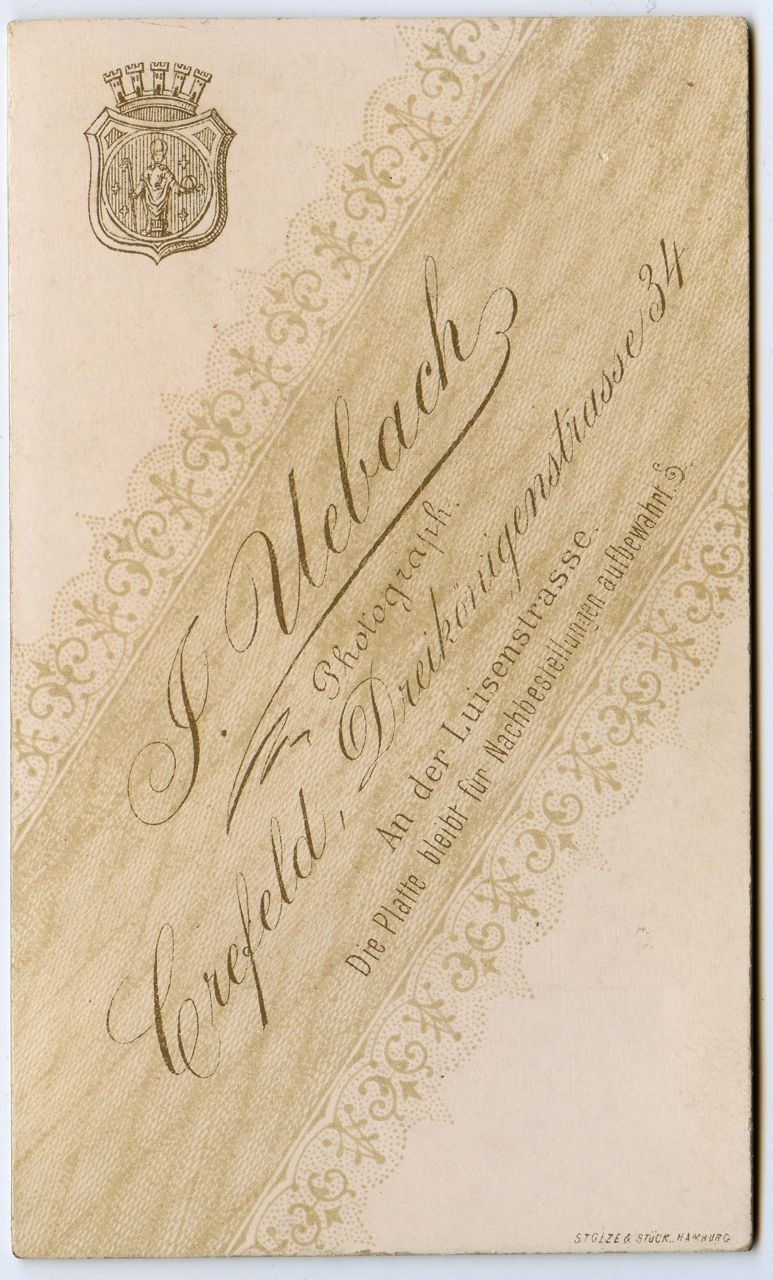 J. Uebach
Photograph.
Crefeld, Dreikönigenstrasse 34
An der Luisenstrasse.
Die Platte bleibt für Nachbestellungen aufbewahrt.
STOLZE & STÜCK_HAMBURG